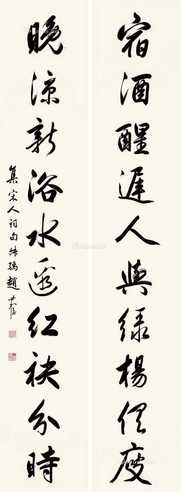 宿酒醒遲人與綠楊俱瘦
晚涼新浴水邊紅袂分時
集宋人詞句 趙世駿